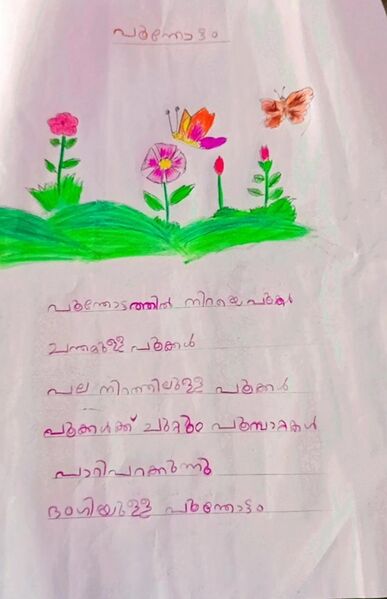 പൂന്തോട്ടം
പൂന്തോട്ടത്തിൽ നിറയെ പൂക്കൾ
ചന്തമുള്ള പൂക്കൾ
പല നിറത്തിലുള്ള പൂക്കൾ
പൂക്കൾക്ക് ചുറ്റും പൂമ്പാറ്റകൾ
പാറിപറക്കുന്നു
ഭംഗിയുള്ള പൂന്തോട്ടം